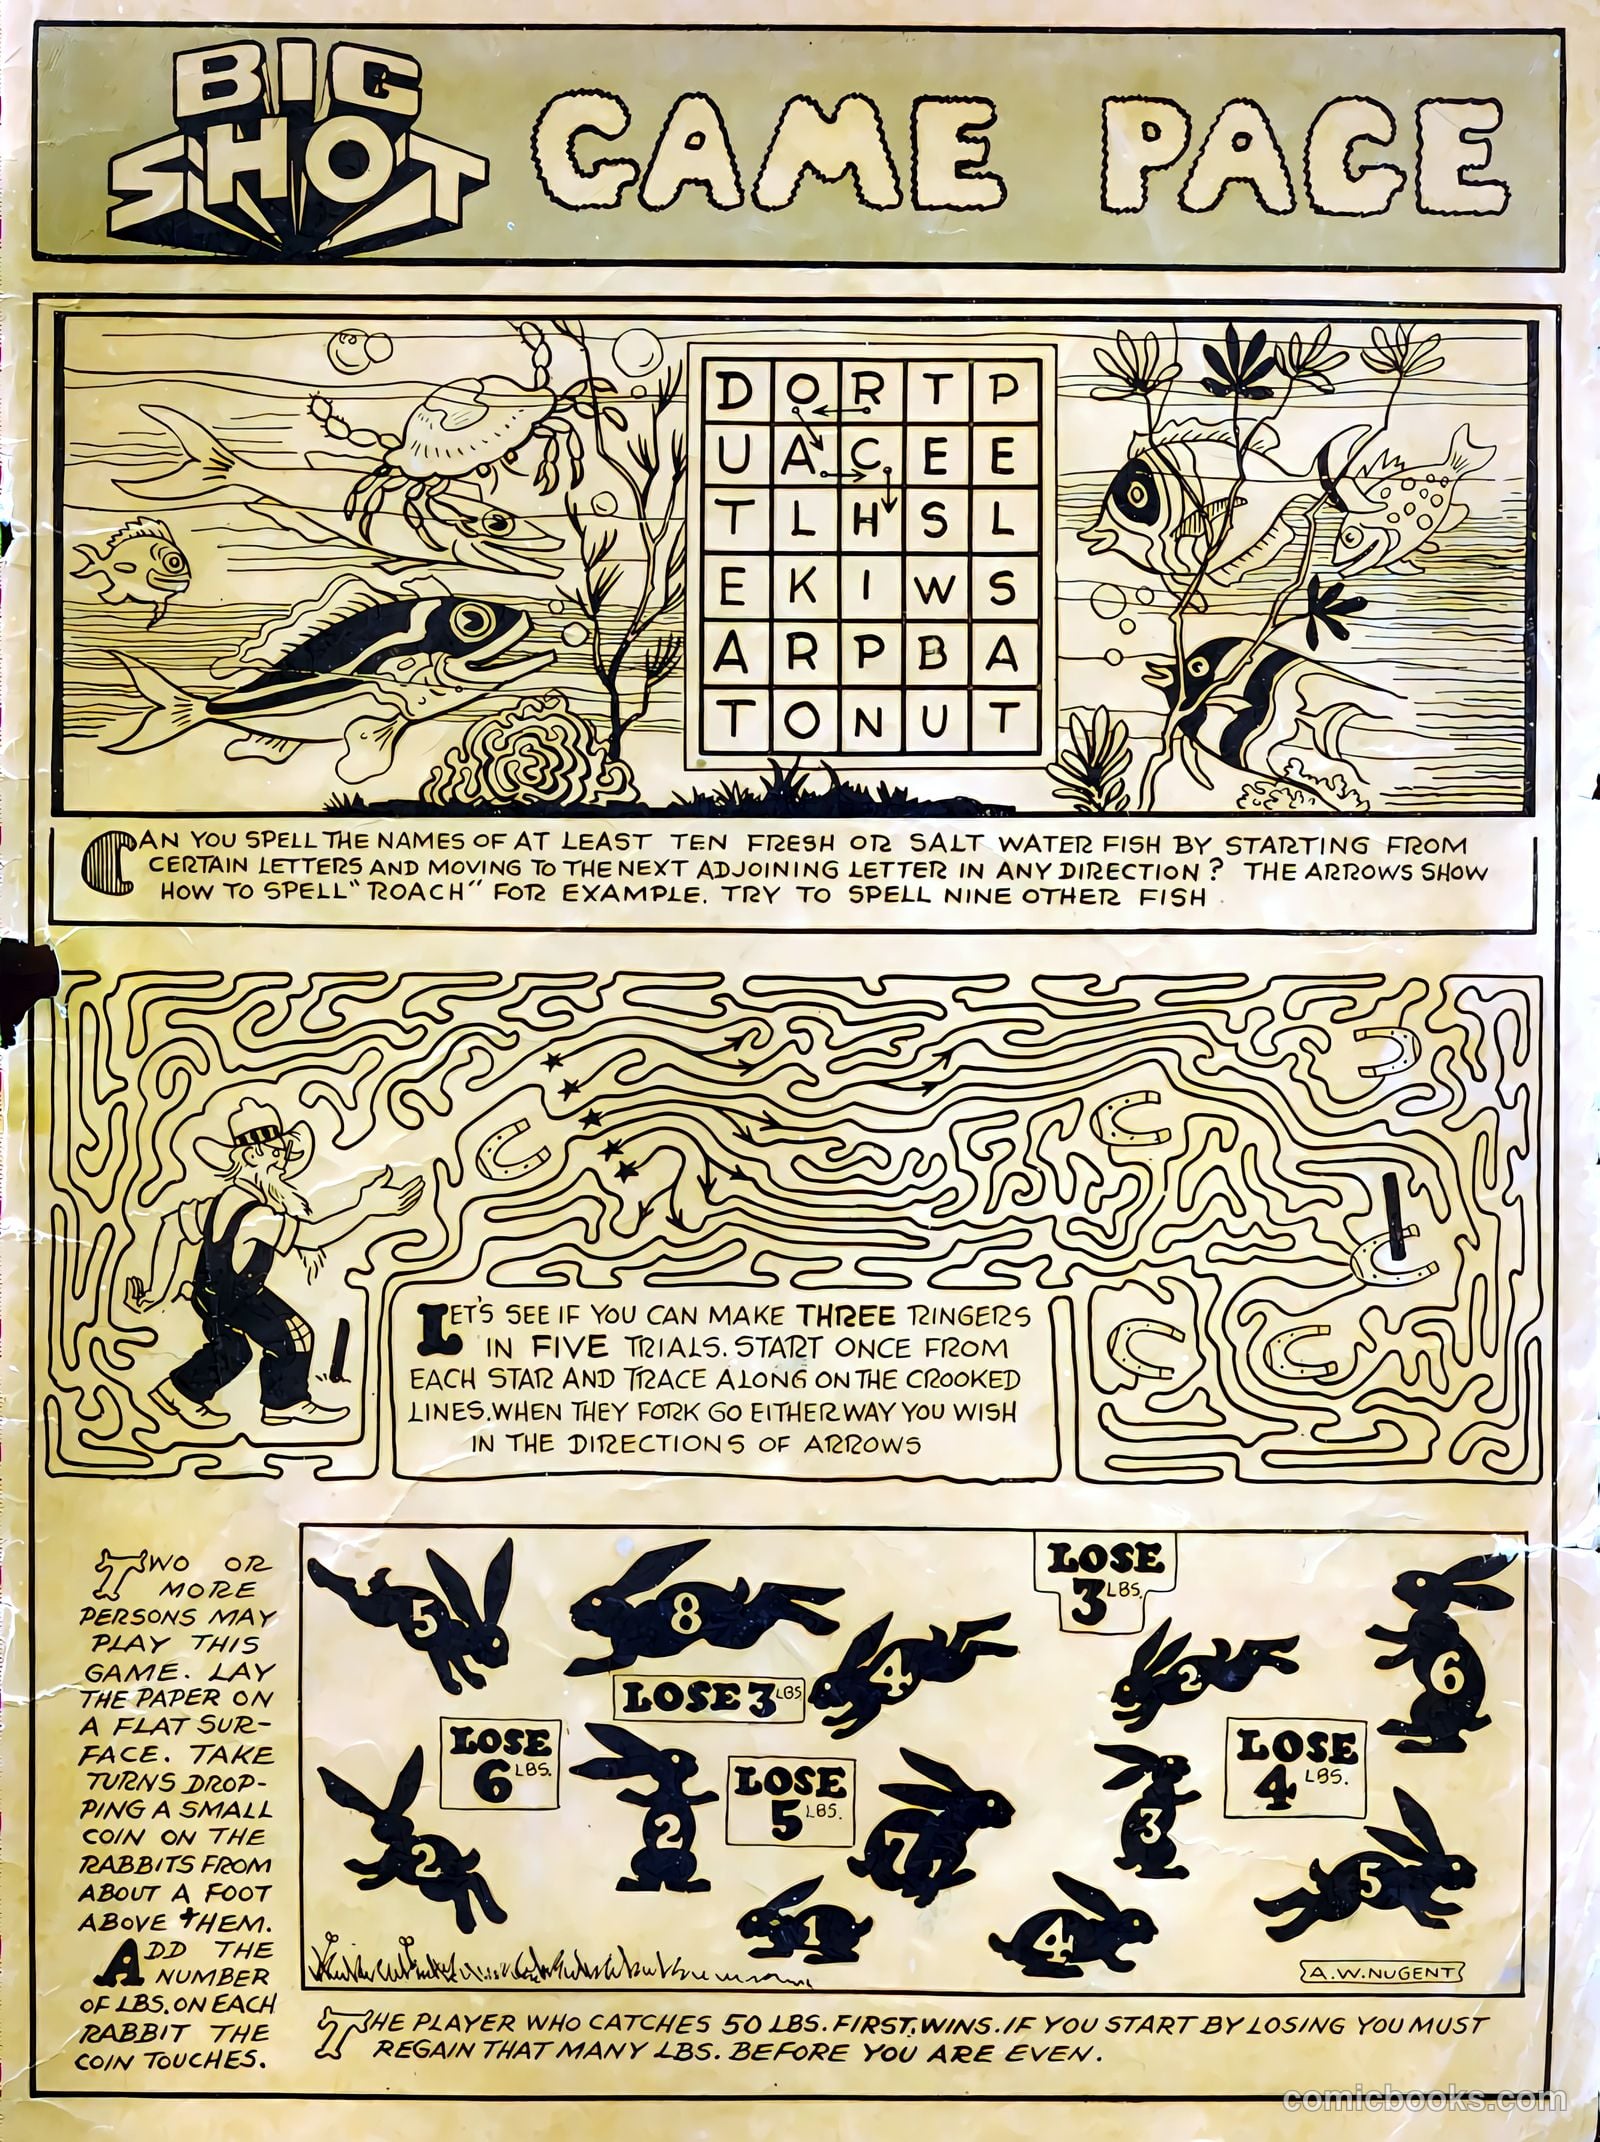 BIG
SHOT
GAME PAGE
D O R T P
U A C E E
T L H S L
E K I W S
A R P B A
T O N U T
CAN YOU SPELL THE NAMES OF AT LEAST TEN FRESH OR SALT WATER FISH BY STARTING FROM
CERTAIN LETTERS AND MOVING TO THE NEXT ADJOINING LETTER IN ANY DIRECTION? THE ARROWS SHOW
HOW TO SPELL "ROACH" FOR EXAMPLE. TRY TO SPELL NINE OTHER FISH
LET'S SEE IF YOU CAN MAKE THREE RINGERS
IN FIVE TRIALS. START ONCE FROM
EACH STAR AND TRACE ALONG ON THE CROOKED
LINES. WHEN THEY FORK GO EITHER WAY YOU WISH
IN THE DIRECTIONS OF ARROWS
TWO OR
MORE
PERSONS MAY
PLAY THIS
GAME. LAY
THE PAPER ON
A FLAT SUR-
FACE. TAKE
TURNS DROP-
PING A SMALL
COIN ON THE
RABBITS FROM
ABOUT A FOOT
ABOVE THEM.
ADD THE
NUMBER
OF LBS. ON EACH
RABBIT THE
COIN TOUCHES.
LOSE
3 LBS.
5
8
4
2
6
LOSE 3 LBS
LOSE
6 LBS.
LOSE
5 LBS.
LOSE
4 LBS.
2
2
7
3
5
1
4
A.W. NUGENT
THE PLAYER WHO CATCHES 50 LBS. FIRST, WINS. IF YOU START BY LOSING YOU MUST
REGAIN THAT MANY LBS. BEFORE YOU ARE EVEN.
comicbooks.com